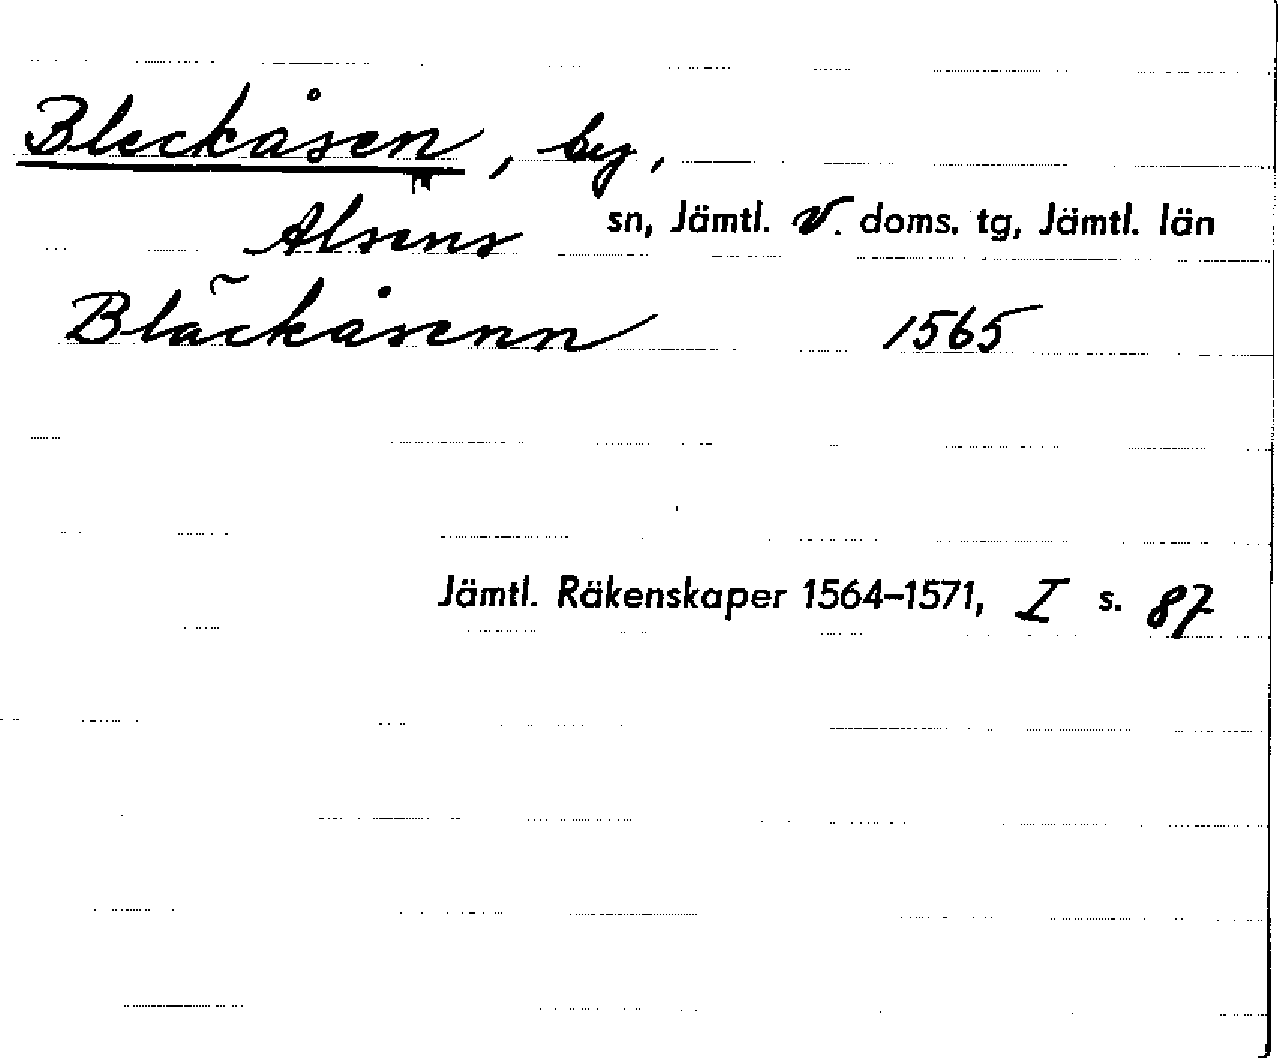 Bleckåsen, by,
Alsens sn, Jämtl. v. doms. tg, Jämtl. län
Bläckåsenn 1565
Jämtl. Räkenskaper 1564–1571, I s. 87